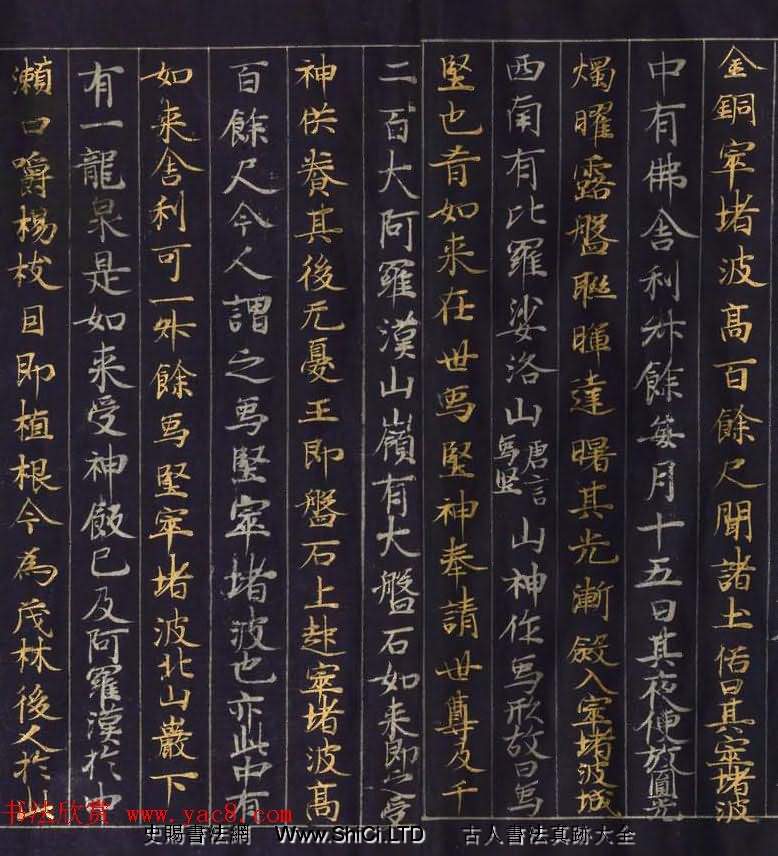 金銅窣堵波高百餘尺聞諸土俗曰其窣堵波
中有佛舍利升餘每月十五日其夜便放圓光
燭曜露盤聯暉達曙其光漸斂入窣堵波城
西南有比羅娑洛山唐言象堅山神作象形故曰象
堅也昔如来在世象堅神奉請世尊及千
二百大阿羅漢山嶺有大盤石如来即之受
神供養其後无憂王即盤石上起窣堵波高
百餘尺今人謂之象堅窣堵波也亦云此中有
如来舍利可一升餘象堅窣堵波北山巖下
有一龍泉是如来受神飯已及阿羅漢於中
漱口嚼楊枝因即植根今為茂林後人於此
书法欣赏 www.yac8.com
史賜書法網 Www.ShiCi.LTD 古人書法真跡大全